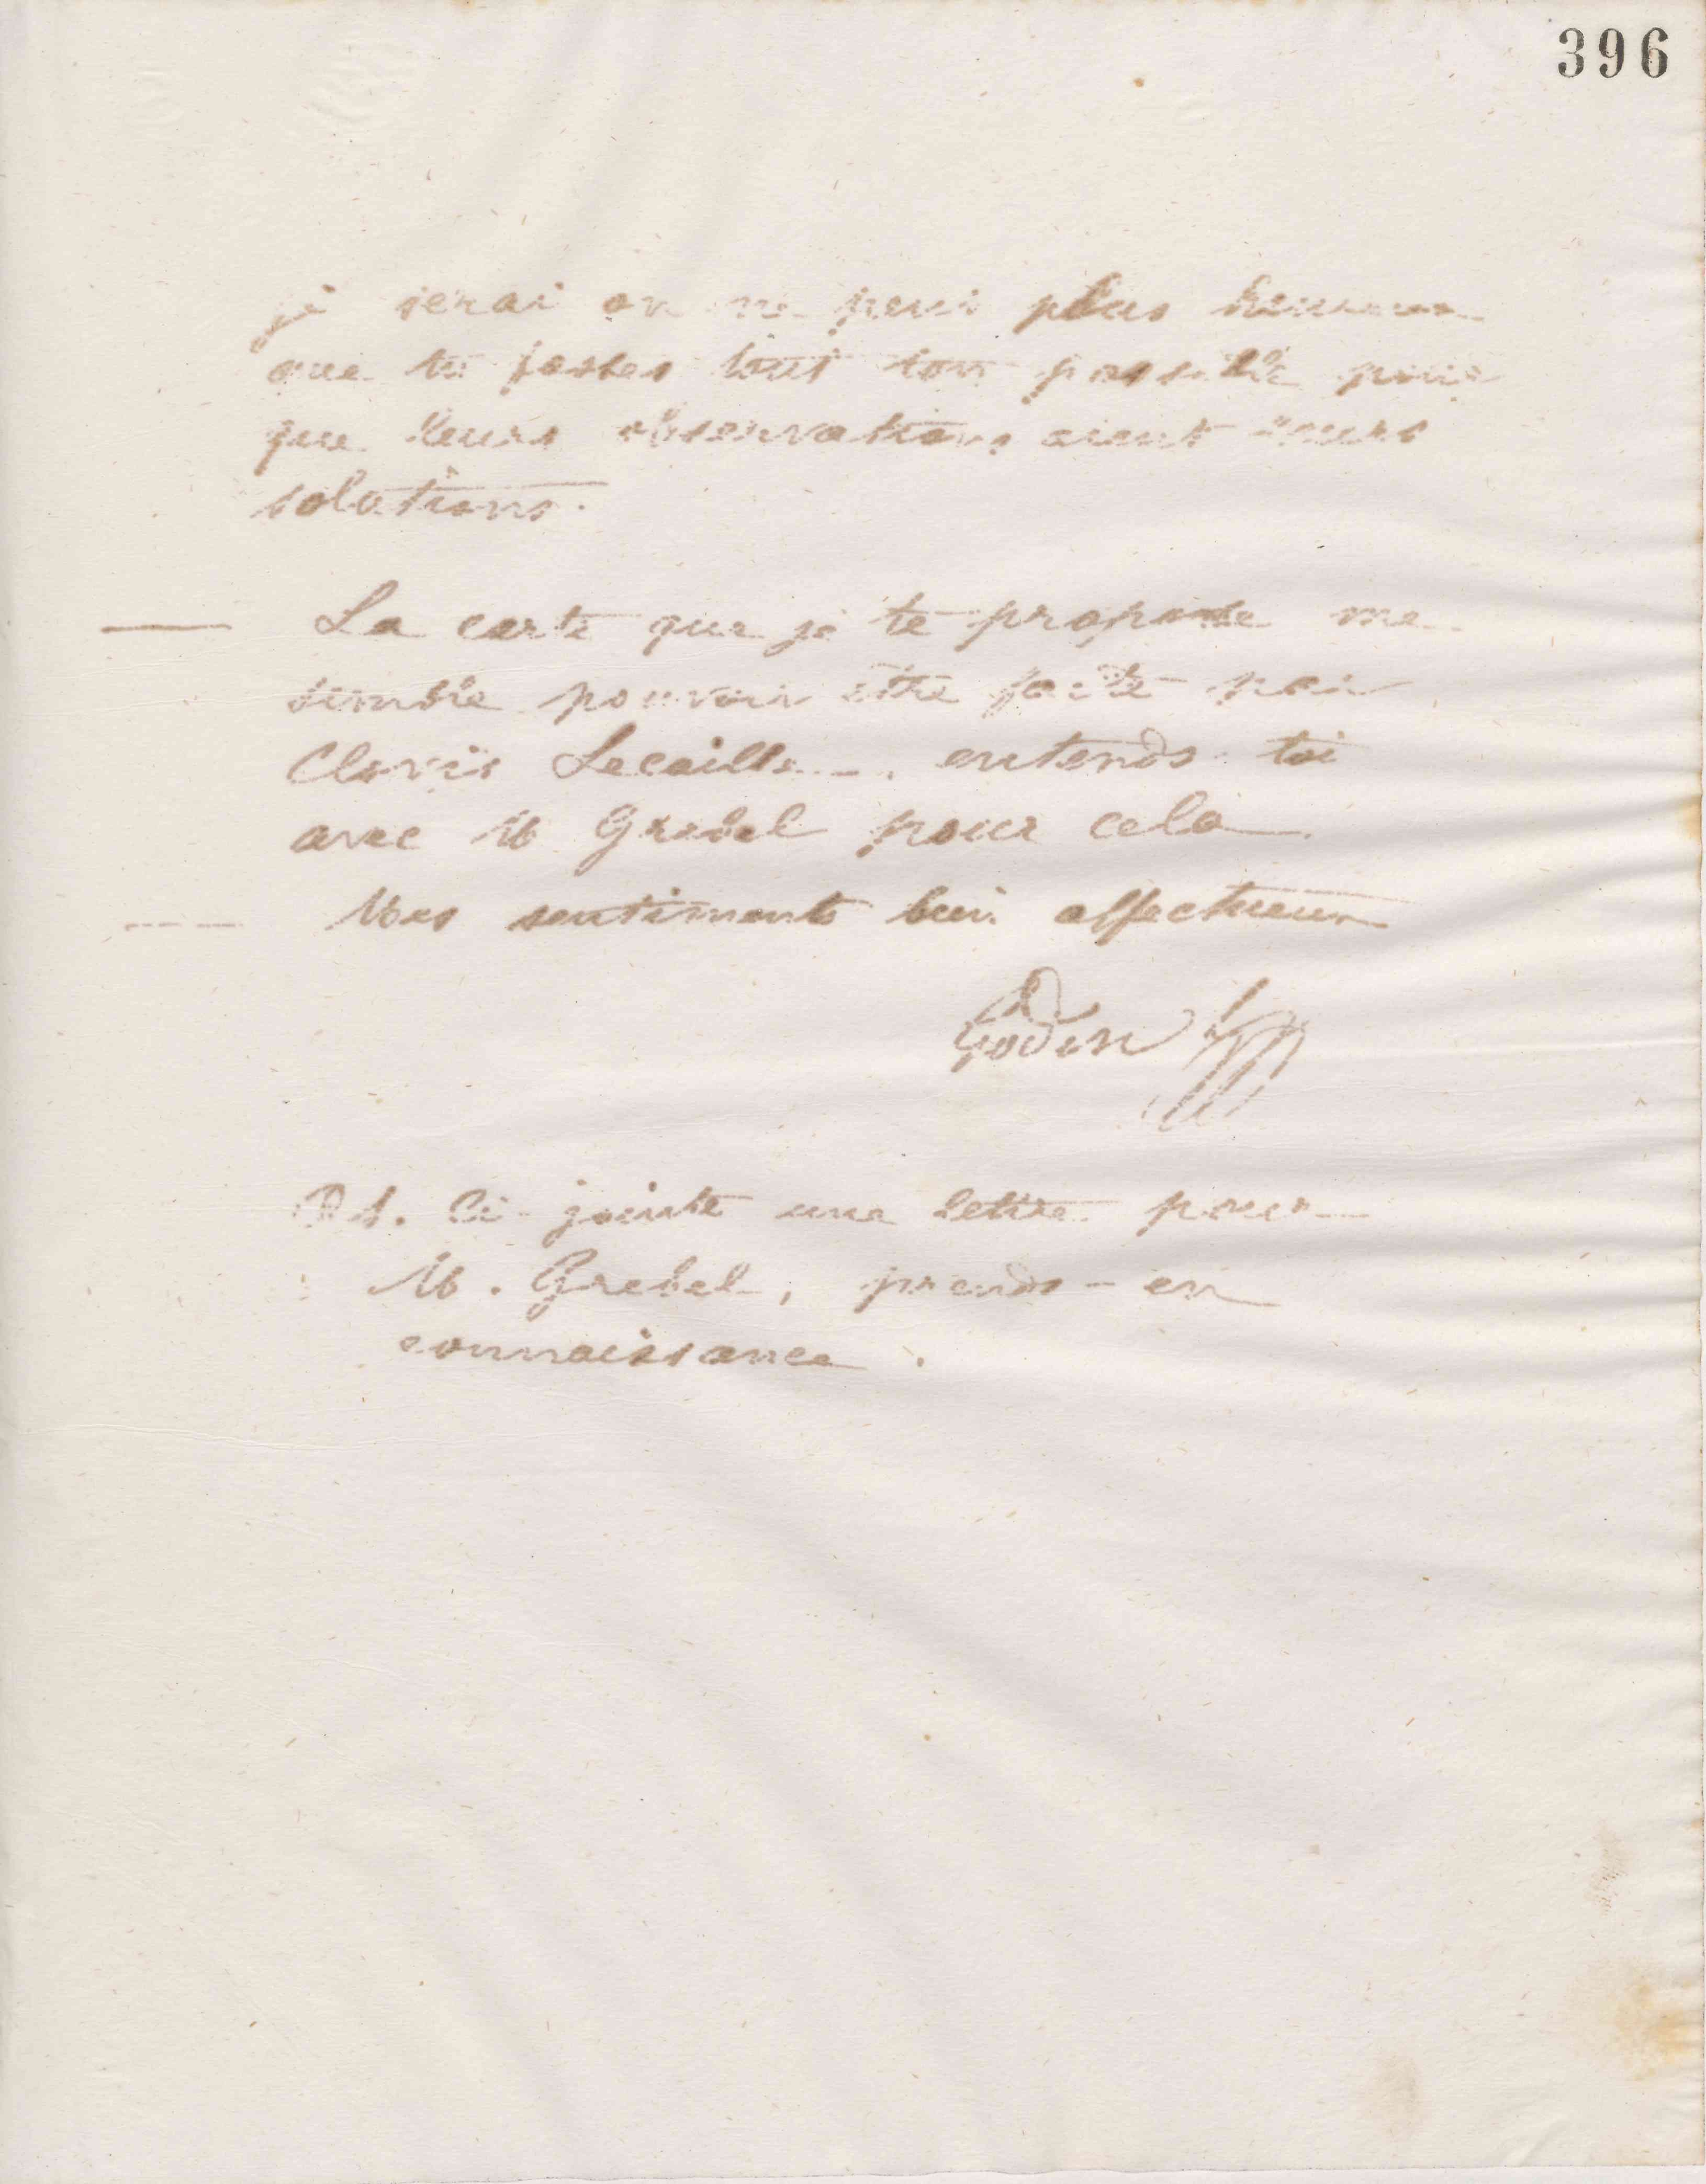 396
je serai on ne peut plus heureux
que tu fasses tout ton possible pour
que leurs observations aient leurs
solutions.
— La carte que je te propose me
semble pouvoir être faite par
Clovis Lecaille. entends toi
avec M Grebel pour cela.
— Mes sentiments bien affectueux
Godin
P.S. Ci-jointe une lettre pour
M. Grebel, prends-en
connaissance.